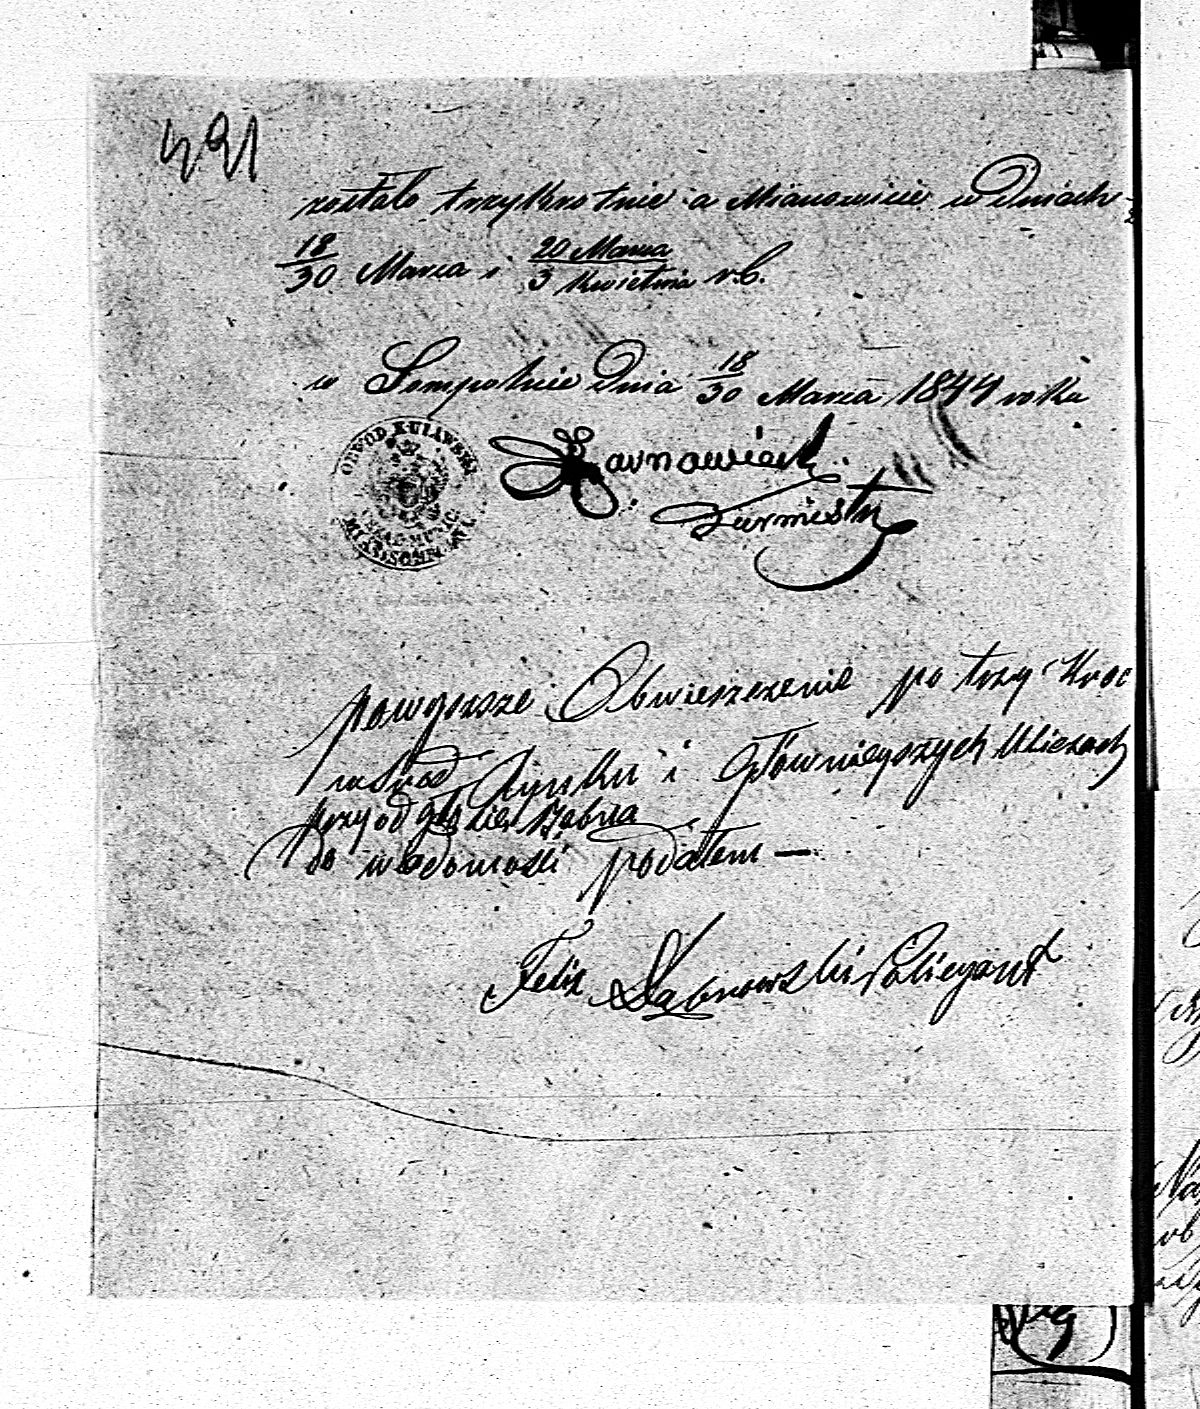 491
zostało trzykrotnie a Mianowicie w Dniach
18/30 Marca i 20 Marca/3 Kwietnia r.b.
w Sompolnie Dnia 18/30 Marca 1844 roku
OBWÓD KUJAWSKI
MIASTA SOMPOLNA
Burmistrz
powyższe Obwieszczenie po trzy kroć
wśrod Rynku i Głównieyszych Uliczach
przy odgłosie Bębna
do wiadomości podałem —
Felix Dąbrowski Policyant